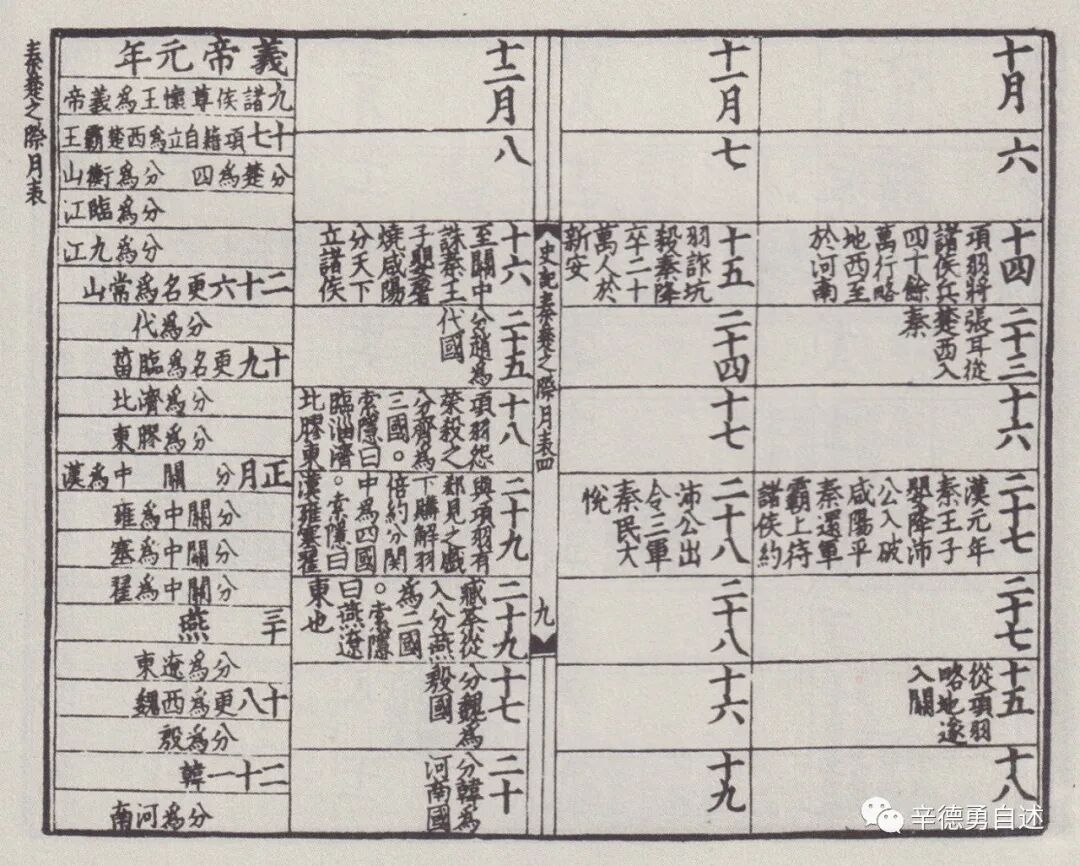 十月
六
十四
項羽將
諸侯兵
四十餘
萬行略
地西至
於河南
二十三
張耳從
楚西入
秦
十六
二十七
漢元年
秦王子
嬰降沛
公入破
咸陽平
秦還軍
霸上待
諸侯約
二十七
十五
從項羽
略地遂
入關
十八
十一月
七
十五
羽詐坑
殺秦降
卒二十
萬人於
新安
二十四
十七
二十八
沛公出
令三軍
秦民大
悅
二十八
十六
十九
史記秦楚之際月表四
九
十二月
八
十六
至關中
誅秦王
子嬰屠
燒咸陽
分天下
立諸侯
二十五
分趙為
代國
十八
項羽怨
榮殺之
分齊為
三國。
索隱曰
臨淄濟
北膠東
二十九
與項羽有
郄見之戲
下講解羽
倍約分關
中為四國
。索隱曰
漢雍塞翟
二十九
臧荼從
入分燕
為二國
。索隱
曰燕遼
東也
十七
分魏為
殷國
二十
分韓為
河南國
義帝元年
九諸侯尊懷王為義帝
十七項籍自立為西楚霸王
分楚為四 分為衡山
分為臨江
分為九江
二十六更名為常山
分為代
十九更名為臨菑
分為濟北
分為膠東
正月分關中為漢
分關中為雍
分關中為塞
分關中為翟
三十燕
分為遼東
十八更為西魏
分為殷
二十一韓
分為河南
秦楚之際月表
辛德勇自述